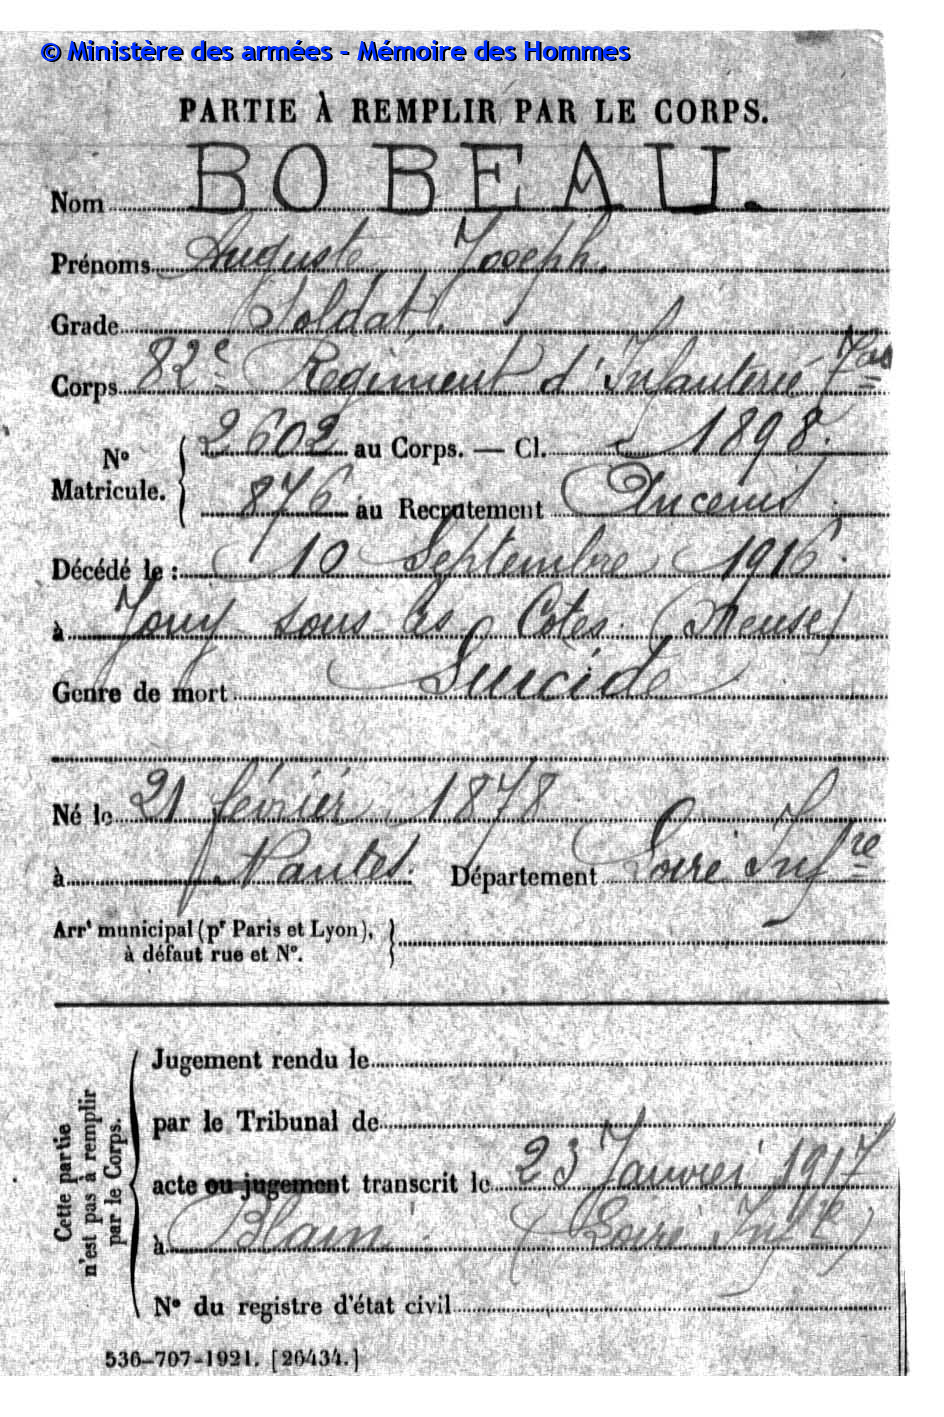 © Ministère des armées - Mémoire des Hommes
PARTIE À REMPLIR PAR LE CORPS.
Nom BOBEAU.
Prénoms Auguste Joseph.
Grade Soldat.
Corps 82e Régiment d'Infanterie
No Matricule. 2602 au Corps. — Cl. 1898.
876 au Recrutement Ancenis
Décédé le : 10 Septembre 1916.
à Jouy sous les Côtes. (Meuse)
Genre de mort Suicide
Né le 21 février 1878
à Nantes. Département Loire Infre
Arrt municipal (pr Paris et Lyon),
à défaut rue et No.
Cette partie n'est pas à remplir par le Corps.
Jugement rendu le
par le Tribunal de
acte ou jugement transcrit le 23 Janvier 1917
à Blain (Loire Infre)
No du registre d'état civil
536-707-1921. [26434.]